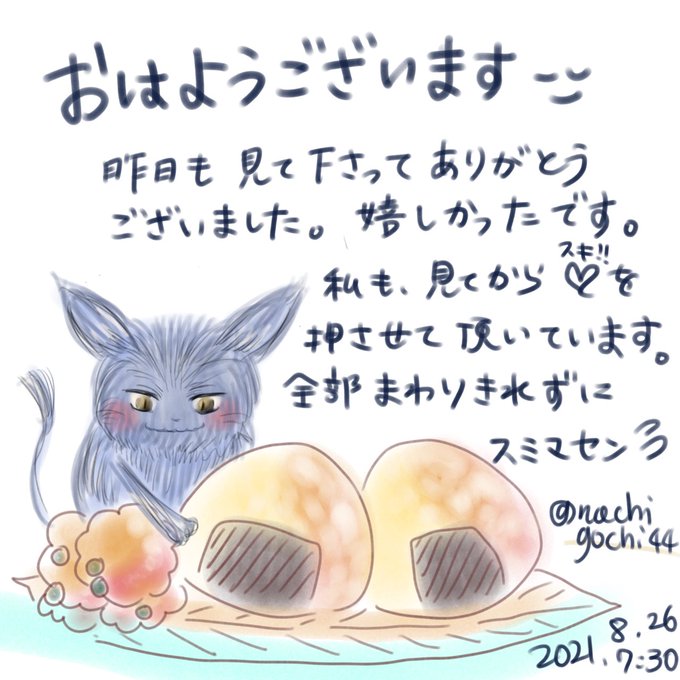 おはようございます
昨日も 見て下さって ありがとう
ございました。嬉しかったです。
スキ!!
私も、見てから ♡を
押させて 頂いています。
全部 まわりきれずに
スミマセン
@nachi
gochi44
8.26
2021.7:30